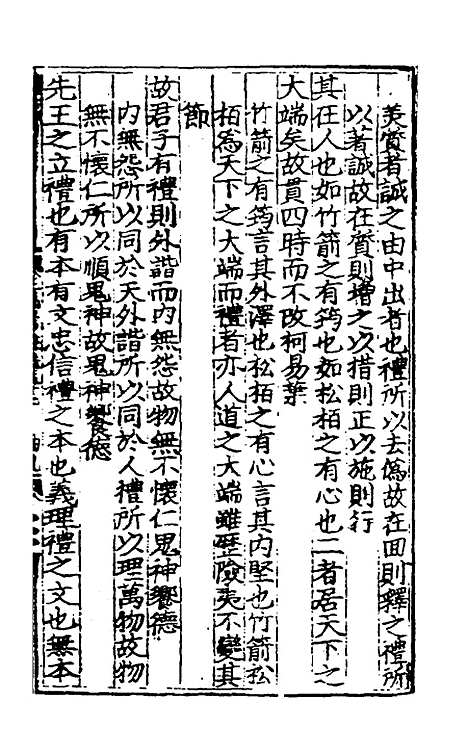 美質者誠之由中出者也禮所以去偽故在面則釋之禮所
以著誠故在質則增之以措則正以施則行
其在人也如竹箭之有筠也如松柏之有心也二者居天下之
大端矣故貫四時而不改柯易葉
竹箭之有筠言其外澤也松柏之有心言其内堅也竹箭松
栢為天下之大端而禮者亦人道之大端雖歷險夷不變其
節
故君子有禮則外諧而内無怨故物無不懷仁鬼神饗德
内無怨所以同於天外諧所以同於人禮所以理萬物故物
無不懷仁所以順鬼神故鬼神饗德
先王之立禮也有本有文忠信禮之本也義理禮之文也無本